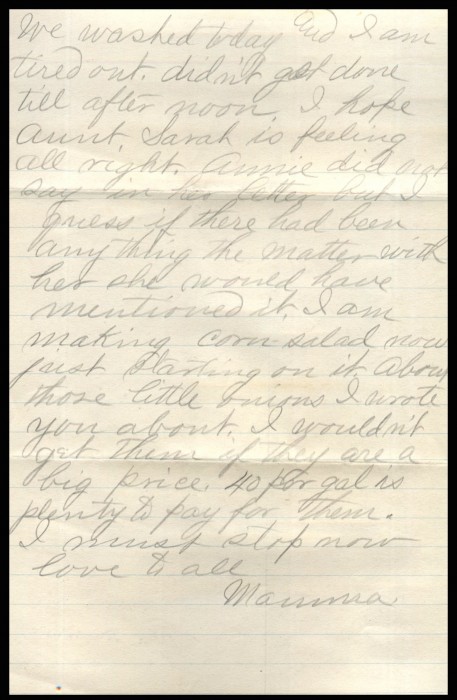 We washed today and I am
tired out. didn't get done
till after noon. I hope
Aunt. Sarah is feeling
all right. Annie did not
say in her letter but I
guess if there had been
anything the matter with
her she would have
mentioned it. I am
making corn salad now
just starting on it. About
those little onions I wrote
you about. I wouldn't
get them if they are a
big price. 40 per gal is
plenty to pay for them.
I must stop now
love to all
Mamma